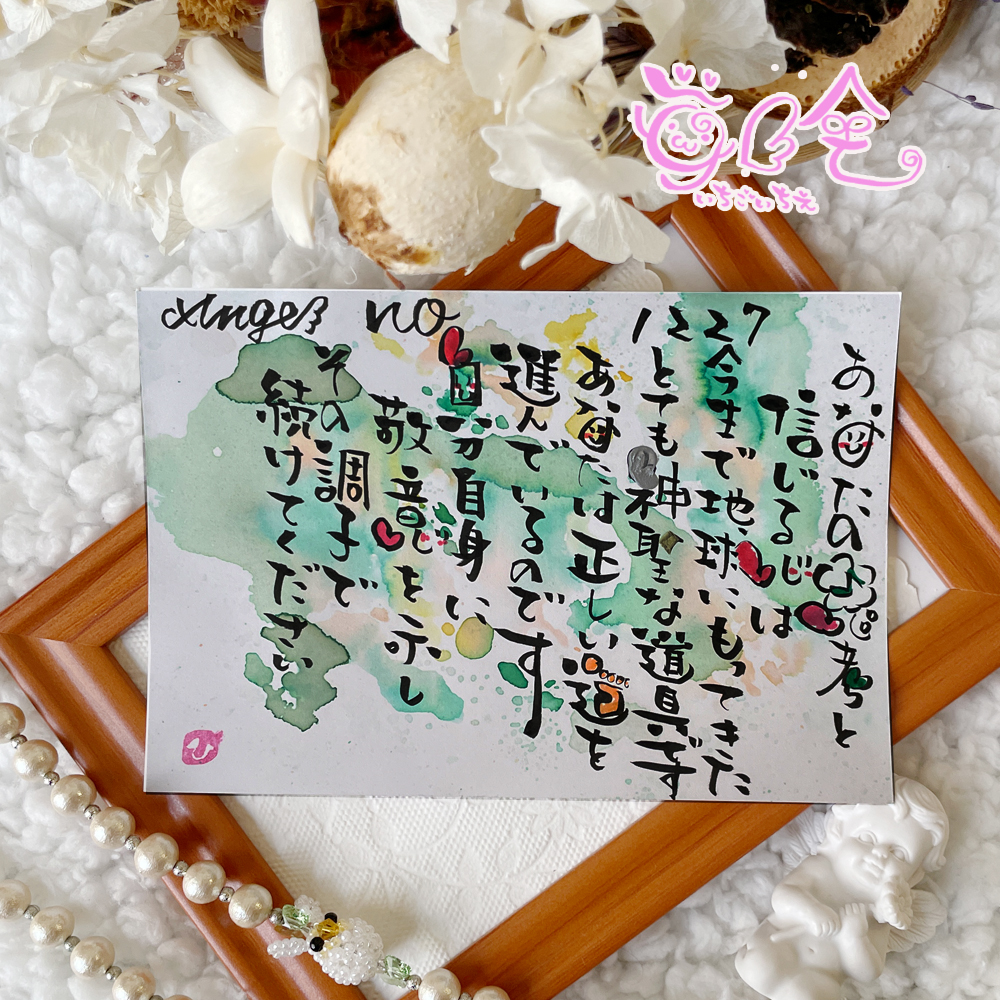 Angel no 1227
あなたの思考と
信じる心は
今生で地球にもってきた
とても神聖な道具です
あなたは正しい道を
進んでいるのです
自分自身に
敬意を示し
その調子で
続けてください
いちごいちえ